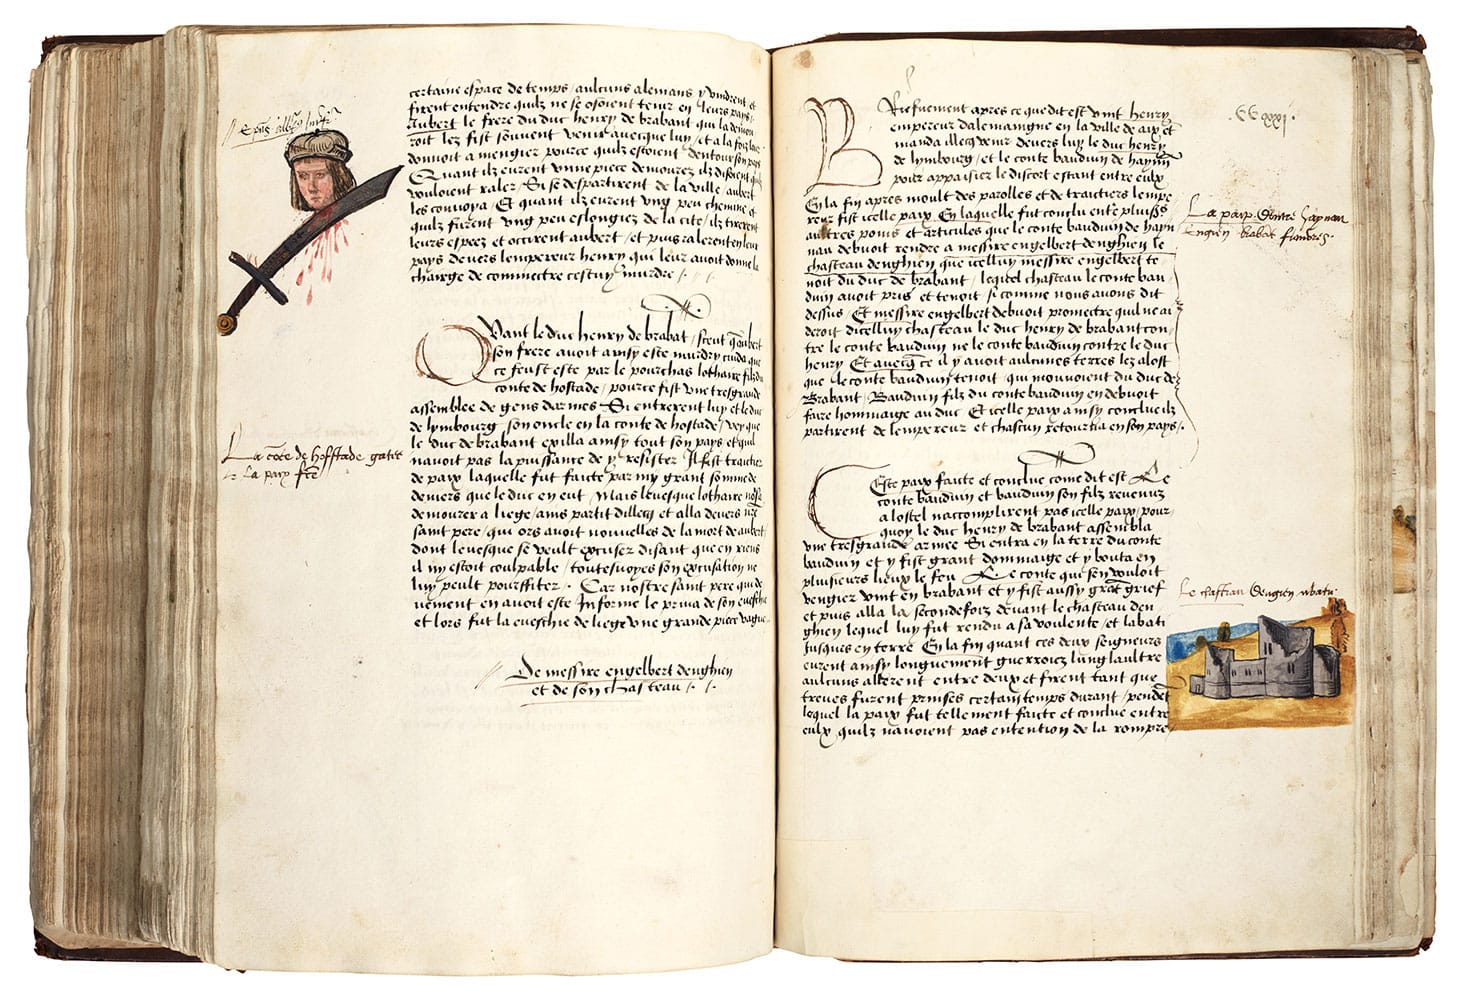 certaine espace de temps / aulcuns alemans y vindrent et
firent entendre quilz ne se osoient tenir en leurs pays
Aubert le frere du duc henry de brabant qui la demou
roit lez fist souvent venir avecque luy / et a la foiz leur
donnoit a mengier pource quilz estoient dentour son pays
Quant ilz eurent une piece demourez ilz disoient quilz
vouloient raler / Si se despartirent de la ville / aubert
les convoya / Et quant ilz eurent ung peu chemine et
quilz furent ung peu eslongiez de la cite / ilz tirerent
leurs espeez et occirent aubert / et puis ralerent en leur
pays devers lempereur henry qui leur avoit donne la
charge de commectre cestuy murdre / .
Quant le duc henry de brabat / sceut q aubert
son frere avoit ainsy este murdry cuida que
ce feust este par le pourchas lothaire filz du
conte de hostade / pource fist une tresgrande
assemblee de gens darmes Si entrerent luy et le duc
de lymbourg son oncle en la conte de hostade / vey que
le duc de brabant exilla ainsy tout son pays et quil
navoit pas la puissance de y resister Il fist traictier
de paix laquelle fut faicte par my grant somme de
deniers que le duc en eut / Mais levesque lothaire
demourer a liege / ains partit dillecq et alla devers nre
saint pere / qui ors avoit nouvelles de la mort de aubert
dont levesque se veult excusez disant que en riens
il ny estoit coulpable / toutesvoyes son excusation ne
luy peult pourffiter / . Car nostre saint pere qui de
uement en avoit este Informe le priva de son evesche
et lors fut la evesche de liege une grande piece vague
De messire engelbert denghien
et de son chasteau / . / .
La cote de hosttade gatee
La paix fce
Briefvement apres ce que dit est vint henry
empereur dalemaingne en la ville de aix et
manda illecq venir devers luy le duc henry
de lymbourg / et le conte bauduin de haynn
pour appaisier le discort estant entre eulx
En la fin apres moult des parolles et de traictiers lempe
reur fist icelle paix En laquelle fut conclu entre pluiss
aultres poins et articules que le conte bauduin de hayn
nau debvoit rendre a messire engelbert denghien le
chasteau denghien que icelluy messire engelbert te
noit du duc de brabant / lequel chasteau le conte bau
duin avoit pris et tenoit / si comme nous avons dit
dessus / Et messire engelbert debvoit promectre quil ne ai
deroit dicelluy chasteau le duc henry de brabant con
tre le conte bauduin ne le conte bauduin contre le duc
henry Et avecq ce il y avoit aulcunes terres lez alost
que le conte bauduin tenoit / qui mouvoient du duc de
Brabant / Bauduin filz du conte bauduin en debvoit
faire hommaige au duc Et icelle paix ainsy conclue ilz
partirent de lempereur et chascun retourna en son pays / .
Ceste paix faicte et conclue come dit est Le
conte bauduin et bauduin son filz revenuz
a lostel naccomplirent pas icelle paix / pour-
quoy le duc henry de brabant assembla
une tresgrande armee Si entra en la terre du conte
bauduin et y fist grant dommaige et y bouta en
pluisieurs lieux le feu Le conte qui sen vouloit
vengier vint en brabant et y fist aussy grat grief
et puis alla la secondefoiz devant le chasteau den
ghien lequel luy fut rendu a sa voulente / et labati
jusques en terre En la fin quant ces deux seigneurs
eurent ainsy longuement guerroiez lung laultre
aulcuns allerent entre deux et firent tant que
treves furent prinses certain temps durant / pendet
lequel la paix fut tellement faicte et conclue entre
eulx quilz navoient pas entention de la rompre
La paix dentre haynau
Enguien brabat
Le chasteau denguien abatu